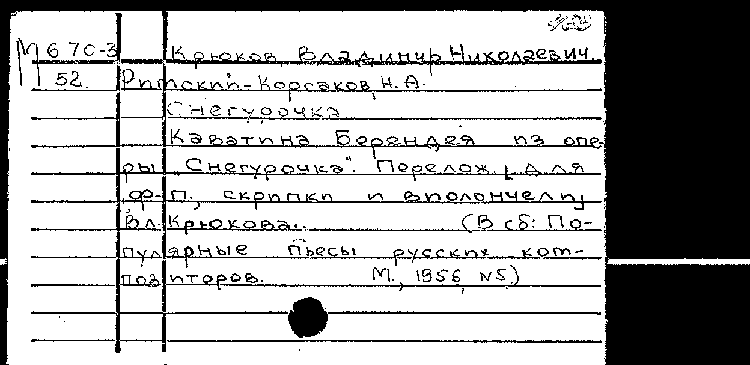 М 670-3 Крюков, Владимир Николаевич.
52 Римский-Корсаков, Н.А.
Снегурочка
Каватина Берендея из опе-
ры „Снегурочка". Перелож. [для
ф-п., скрипки и виолончели]
Вл. Крюкова. (В сб: По-
пулярные пьесы русских ком-
позиторов. М., 1956, №5)